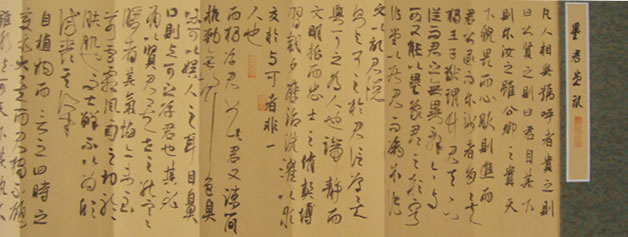 墨君堂記
凡人相與稱呼者貴之則
曰公賢之則曰君自其下
則爾汝之雖公卿之貴天
下貌畏而心不服則進而
君公退而爾汝者多矣
獨王子猷謂竹君天下
從而君之無異辭今與
可又能以墨象君之形容
作堂以居君而屬余為
文以頌君德
則與可之於君信厚矣
與可之為人也端靜而
文明哲而忠士之修潔博
習朝夕磨治洗濯以求
交於與可者非一
人也
而獨厚君如此君又疏簡
抗勁無聲色臭
味可以娛人之耳目鼻
口則與可之厚君也其必
有以賢君矣世之能寒
燠人者其氣焰亦未至
若雪霜風雨之切於
肌膚也而士鮮不以為欣
戚喪其所守
自植物而言之四時之
變亦大矣而君獨不顧
雖微與可天下其孰不